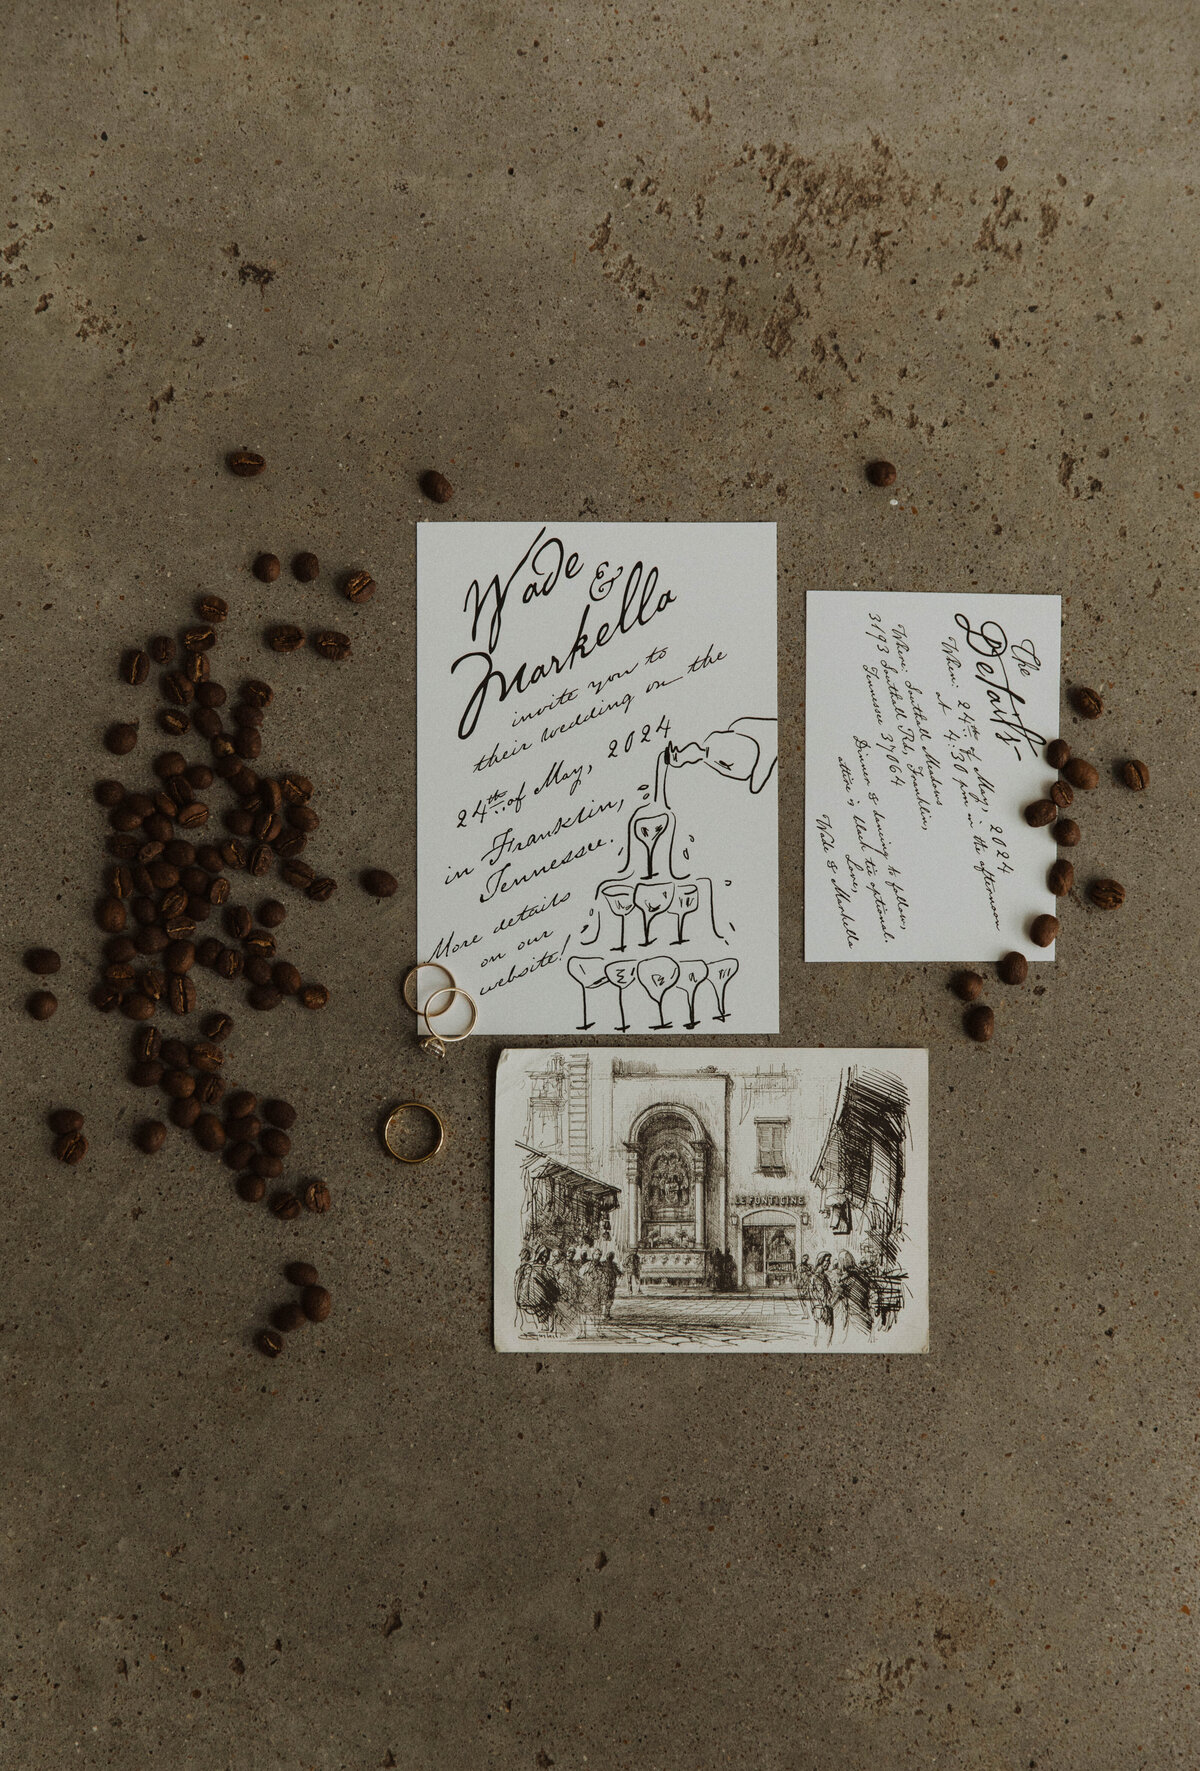 Wade &
Markella
invite you to
their wedding on the
24th of May, 2024
in Franklin,
Tennessee.
More details
on our
website!
The
Details
When: 24th of May, 2024
At 4:30pm in the afternoon
Where: Southall Meadows
3193 Southall Rd, Franklin,
Tennessee 37064
Dinner & dancing to follow,
attire is black tie optional.
Love,
Wade & Markella
LE FONTICINE